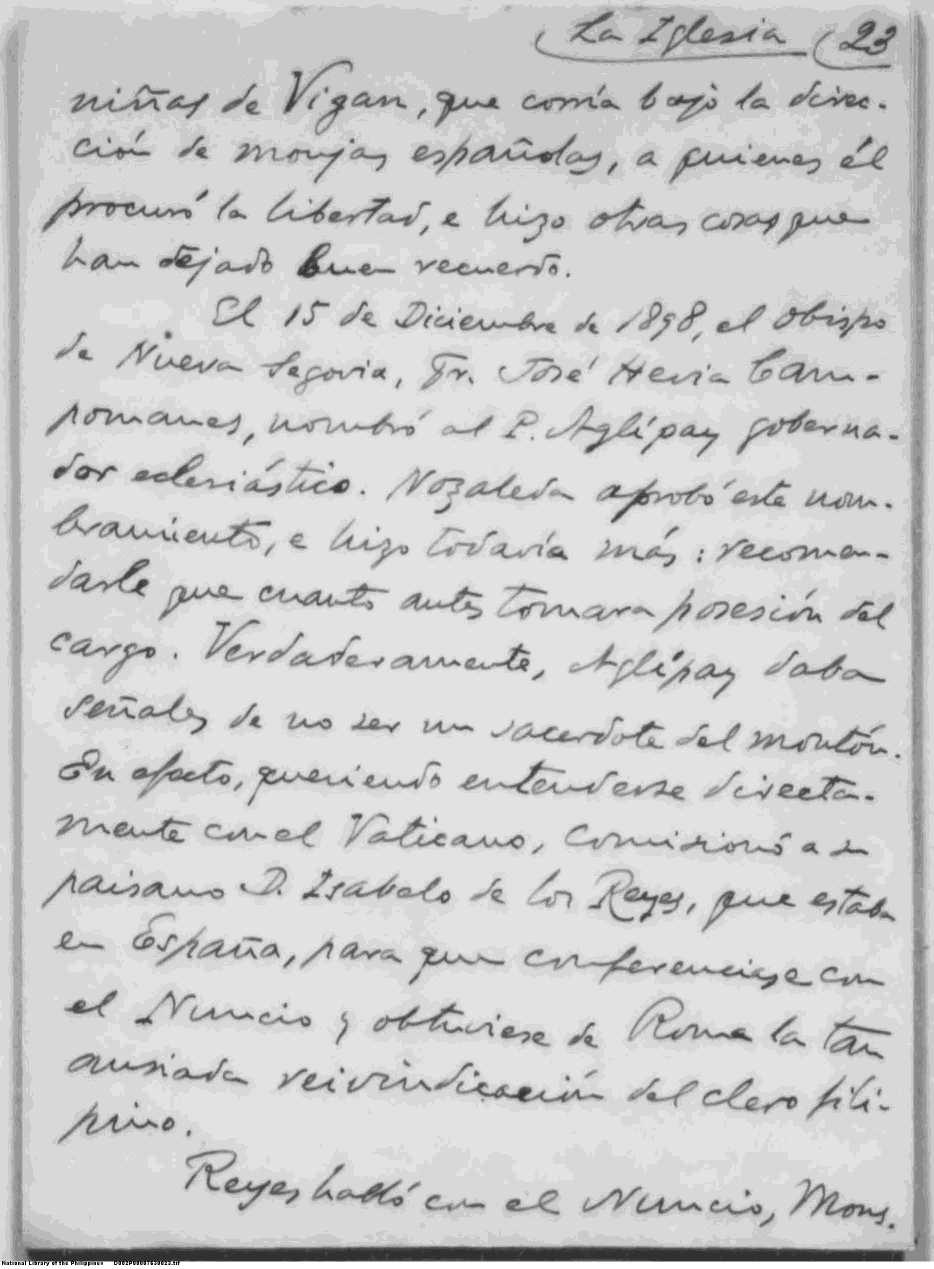 La Iglesia 23
niñas de Vigan, que corría bajo la direc-
ción de monjas españolas, a quienes él
procuró la libertad, e hizo otras cosas que
han dejado buen recuerdo.
El 15 de Diciembre de 1898, el Obispo
de Nueva Segovia, Fr. José Hevia Cam-
pomanes, nombró al P. Aglípay goberna-
dor eclesiástico. Nozaleda aprobó este nom-
bramiento, e hizo todavía más: recomen-
darle que cuanto antes tomara posesión del
cargo. Verdaderamente, Aglípay daba
señales de no ser un sacerdote del montón.
En efecto, queriendo entenderse directa-
mente con el Vaticano, comisionó a su
paisano D. Isabelo de los Reyes, que estaba
en España, para que conferenciase con
el Nuncio y obtuviese de Roma la tan
ansiada reivindicación del clero fili-
pino.
Reyes habló con el Nuncio, Mons.
National Library of the Philippines